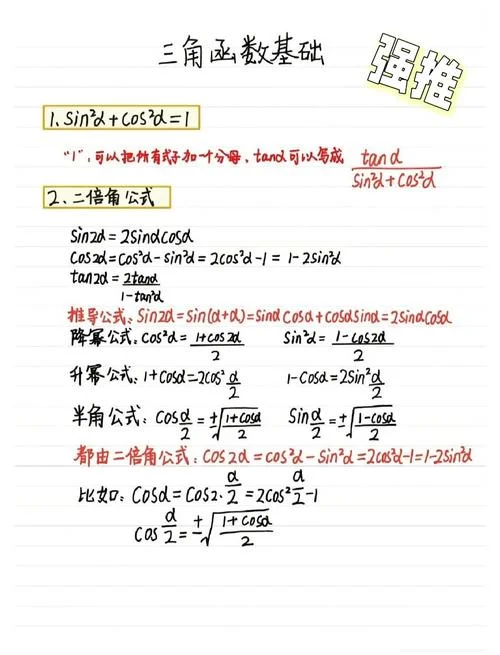 三角函数基础
强推
1、sin²α+cos²α=1
"1",可以把所有式子加一个分母,tanα可以写成 tanα/(sin²α+cos²α)
2、二倍角公式
sin2α=2sinαcosα
cos2α=cos²α-sin²α=2cos²α-1=1-2sin²α
tan2α=2tanα/(1-tan²α)
推导公式:sin2α=sin(α+α)=sinαcosα+cosαsinα=2sinαcosα
降幂公式:cos²α=(1+cos2α)/2 sin²α=(1-cos2α)/2
升幂公式:1+cosα=2cos²α/2 1-cosα=2sin²α/2
半角公式:cosα/2=±√((1+cosα)/2) sinα/2=±√((1-cosα)/2)
都由二倍角公式:cos2α=cos²α-sin²α=2cos²α-1=1-2sin²α
比如:cosα=cos2·α/2=2cos²α/2-1
cosα/2=±√((1+cosα)/2)